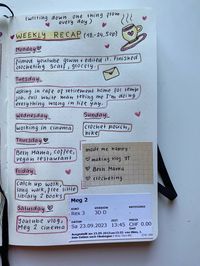 (writing down one thing from
every day)
WEEKLY RECAP (18.-24. Sep)
Monday
filmed youtube grwm + edited it. finished
crocheting scarf, grocery.
Tuesday
asking in cafe of retirement home for temp
job, evil white man telling me I'm doing
everything wrong in life yay.
Wednesday
working in cinema
Sunday
crochet pouch,
hike
Thursday
Bern Mama, coffee,
vegan restaurant
Friday
catch up work,
long walk, free little
library 2 books
Saturday
Youtube vlog,
Meg 2 cinema
made me happy:
making vlog YT
Bern Mama
crocheting
Meg 2
Rex 3
3D D
Sa 23.09.2023
13:45
CHF 0.00